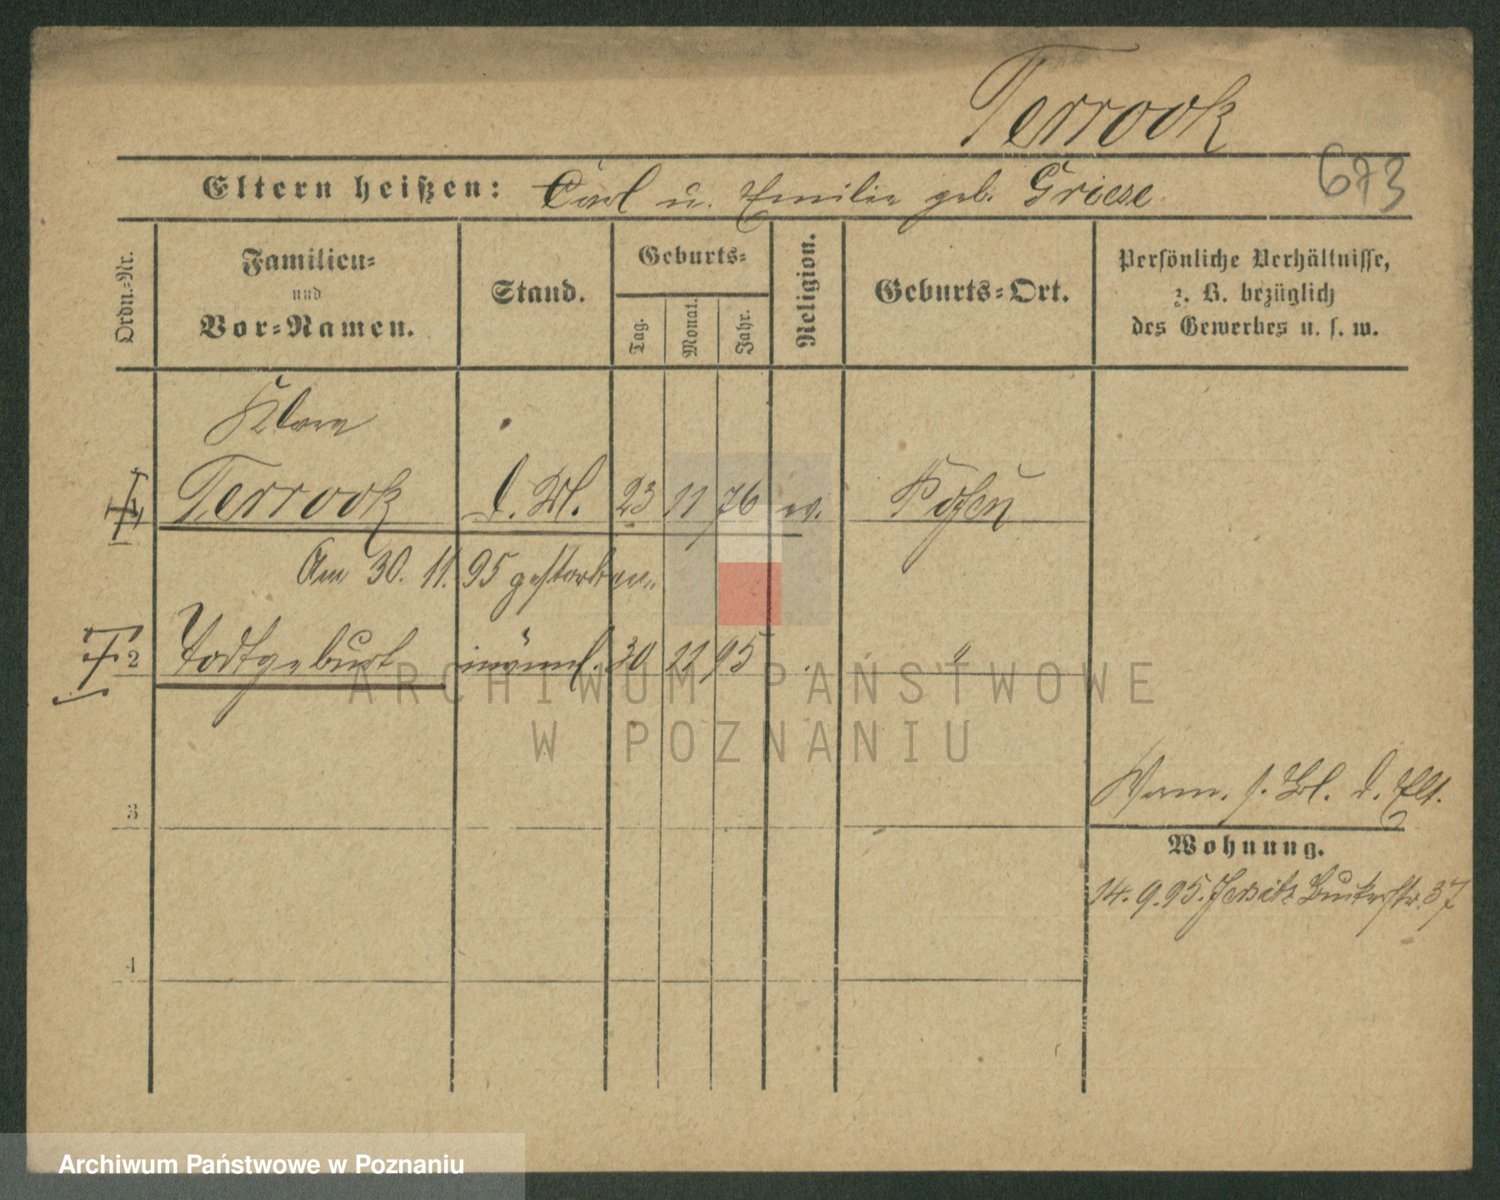 Terrook
Eltern heißen: Carl u. Emilie geb. Griese
673
Ordn.-Nr.
Familien-
und
Vor-Namen.
Stand.
Geburts-
Tag.
Monat.
Jahr.
Religion.
Geburts-Ort.
Persönliche Verhältnisse,
z. B. bezüglich
des Gewerbes u. s. w.
Klara
Terrook d. Bl. 23 11 76 ev. Posen
Am 30. 11. 95 gestorben.
2 Todtgeburt männl. 30 11 95 "
3
Verm. s. Bl. d. Elt.
Wohnung.
14. 9. 95. Jersitz Bukerstr. 37
4
ARCHIWUM PAŃSTWOWE
W POZNANIU
Archiwum Państwowe w Poznaniu